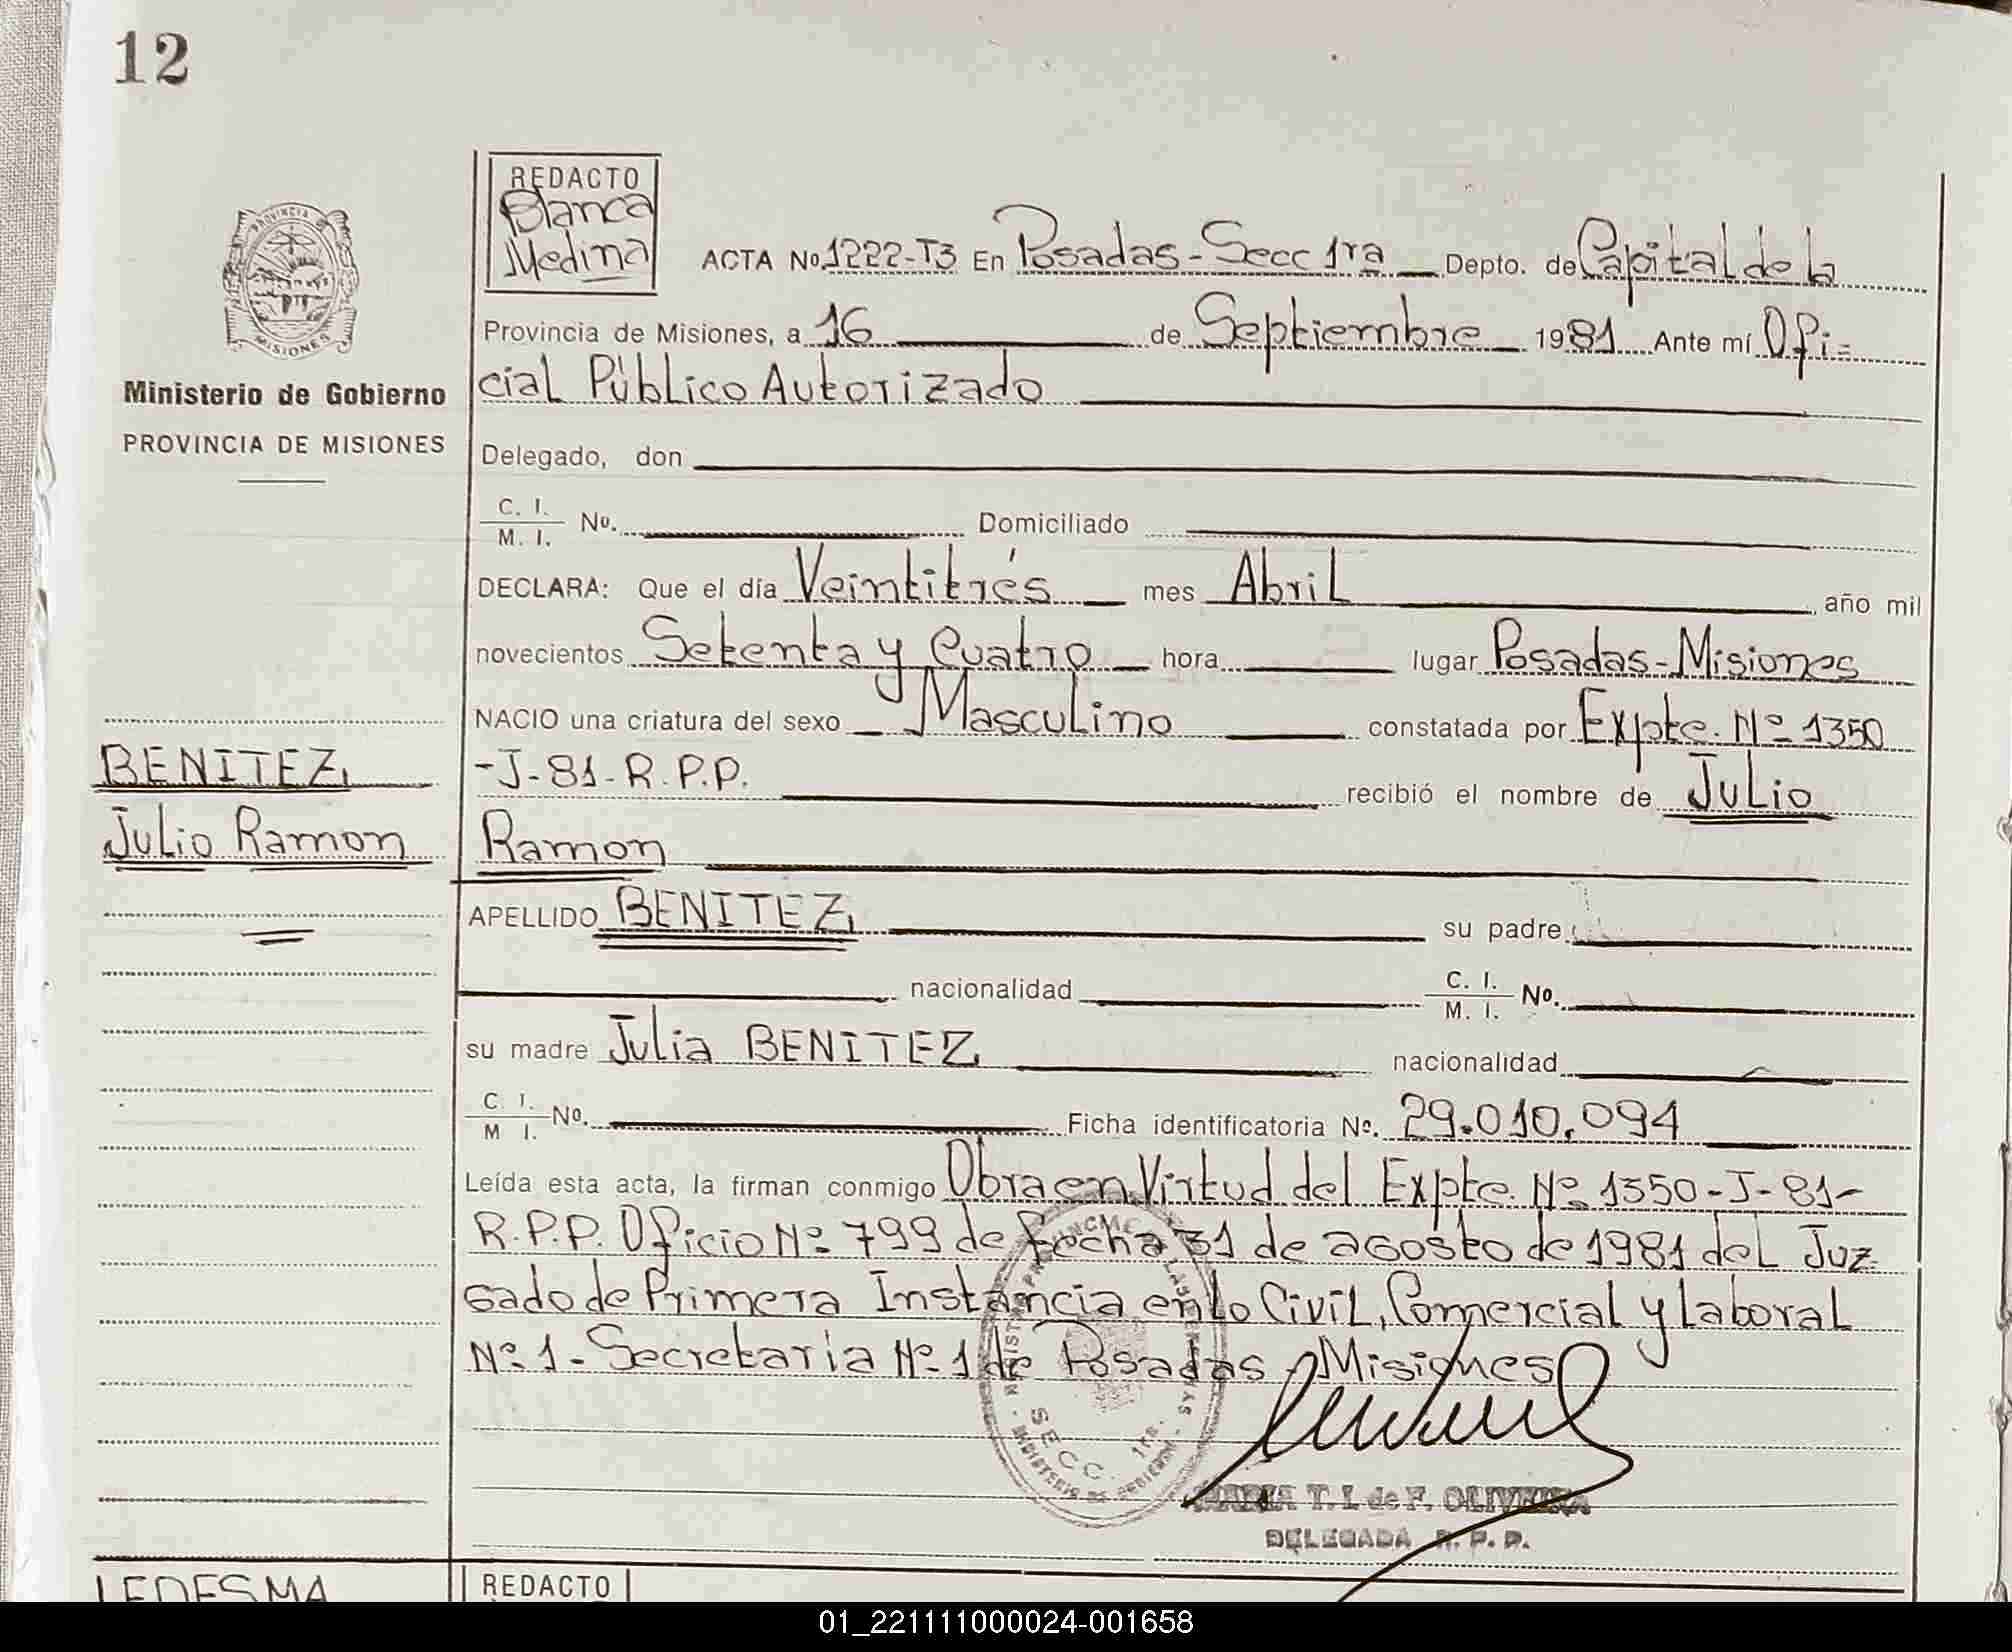 12
REDACTO
Blanca
Medina
PROVINCIA DE
MISIONES
Ministerio de Gobierno
PROVINCIA DE MISIONES
ACTA No. 1222-T3 En Posadas-Secc 1ra Depto. de Capital de la
Provincia de Misiones, a 16 de Septiembre 1981 Ante mí Ofi-
cial Público Autorizado
Delegado, don
C. I.
M. I. No. Domiciliado
DECLARA: Que el día Veintitrés mes Abril, año mil
novecientos Setenta y Cuatro hora lugar Posadas-Misiones
NACIO una criatura del sexo Masculino constatada por Expte. Nº 1350
-J-81-R.P.P. recibió el nombre de Julio
Ramon
BENITEZ,
Julio Ramon
APELLIDO BENITEZ, su padre
nacionalidad C. I.
M. I. No.
su madre Julia BENITEZ nacionalidad
C. I.
M I. No. Ficha identificatoria No. 29.010.094
Leída esta acta, la firman conmigo Obra en Virtud del Expte. Nº 1350-J-81-
R.P.P. Oficio Nº 799 de fecha 31 de agosto de 1981 del Juz
gado de Primera Instancia en lo Civil, Comercial y Laboral
Nº 1- Secretaria Nº 1 de Posadas-Misiones
SECC. 1ra.
MARIA T. I. de F. OLIVEIRA
DELEGADA R. P. P.
LEDESMA
REDACTO
01_221111000024-001658